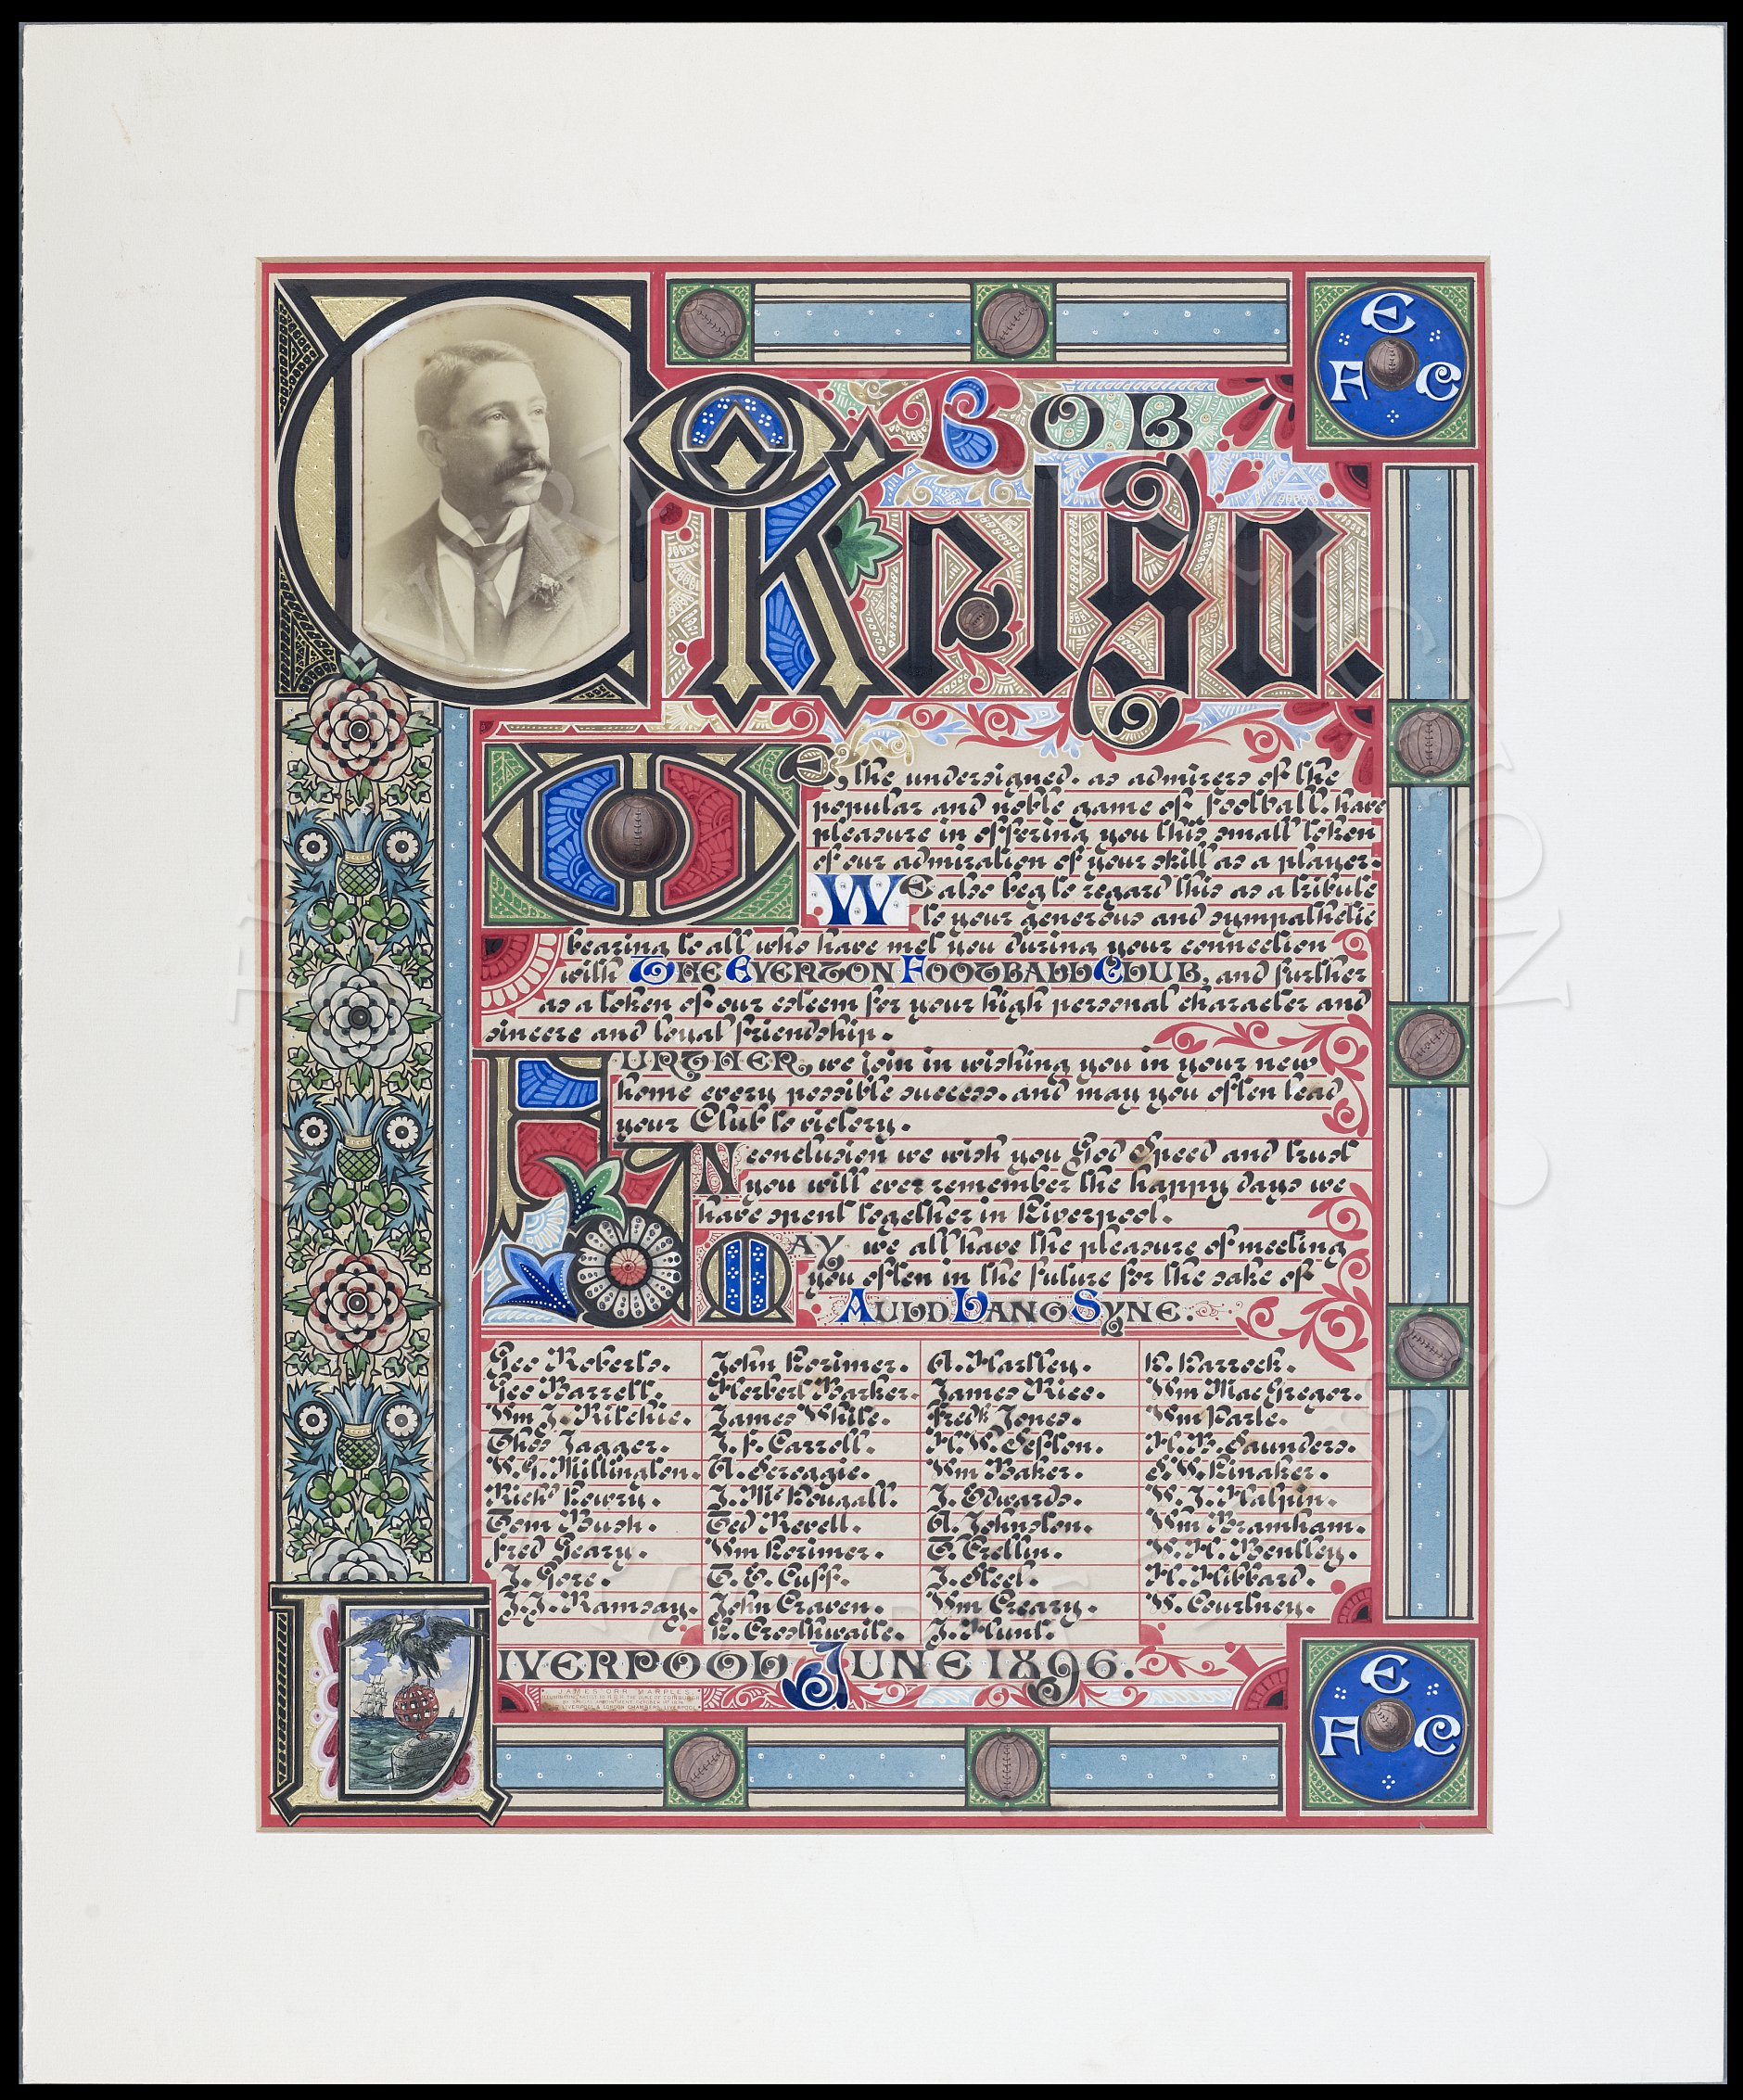 To Bob
Kelso.
E A C
We, the undersigned, as admirers of the
popular and noble game of football, have
pleasure in offering you this small token
of our admiration of your skill as a player.
We also beg to regard this as a tribute
to your generous and sympathetic
bearing to all who have met you during your connection
with The Everton Football Club, and further
as a token of our esteem for your high personal character and
sincere and loyal friendship.
Further, we join in wishing you in your new
home every possible success, and may you often lead
your Club to victory.
In conclusion we wish you God Speed and trust
you will ever remember the happy days we
have spent together in Liverpool.
May we all have the pleasure of meeting
you often in the future for the sake of
Auld Lang Syne.
Geo Roberts.
Geo Barrett.
Wm J. Ritchie.
Thos Jagger.
W. G. Millington.
Richd Lowry.
Tom Bush.
Fred Geary.
J. Gore.
J. J. Ramsay.
John Lorimer.
Herbert Barker.
James White.
J. F. Carroll.
A. Scroggie.
J. McDougall.
Ted Revell.
Wm Lorimer.
T. E. Cuff.
John Craven.
R. Crosthwaite.
A. Hartley.
James Rice.
Fredk Jones.
H. W. Sefton.
Wm Baker.
J. Edwards.
A. Johnston.
T. Crellin.
J. Steel.
Wm Creary.
J. Hunt.
Wm MacGregor.
Wm Parle.
H. B. Saunders.
S. W. Linaker.
W. J. Halpin.
Wm Bramham.
W. H. Bentley.
H. Hibbard.
W. Courtney.
Liverpool June 1896.
JAMES ORR MARPLES,
ILLUMINATING ARTIST TO H.R.H. THE DUKE OF EDINBURGH
BY SPECIAL APPOINTMENT, OCTOBER
LIVERPOOL & LONDON CHAMBERS, LIVERPOOL
E A C